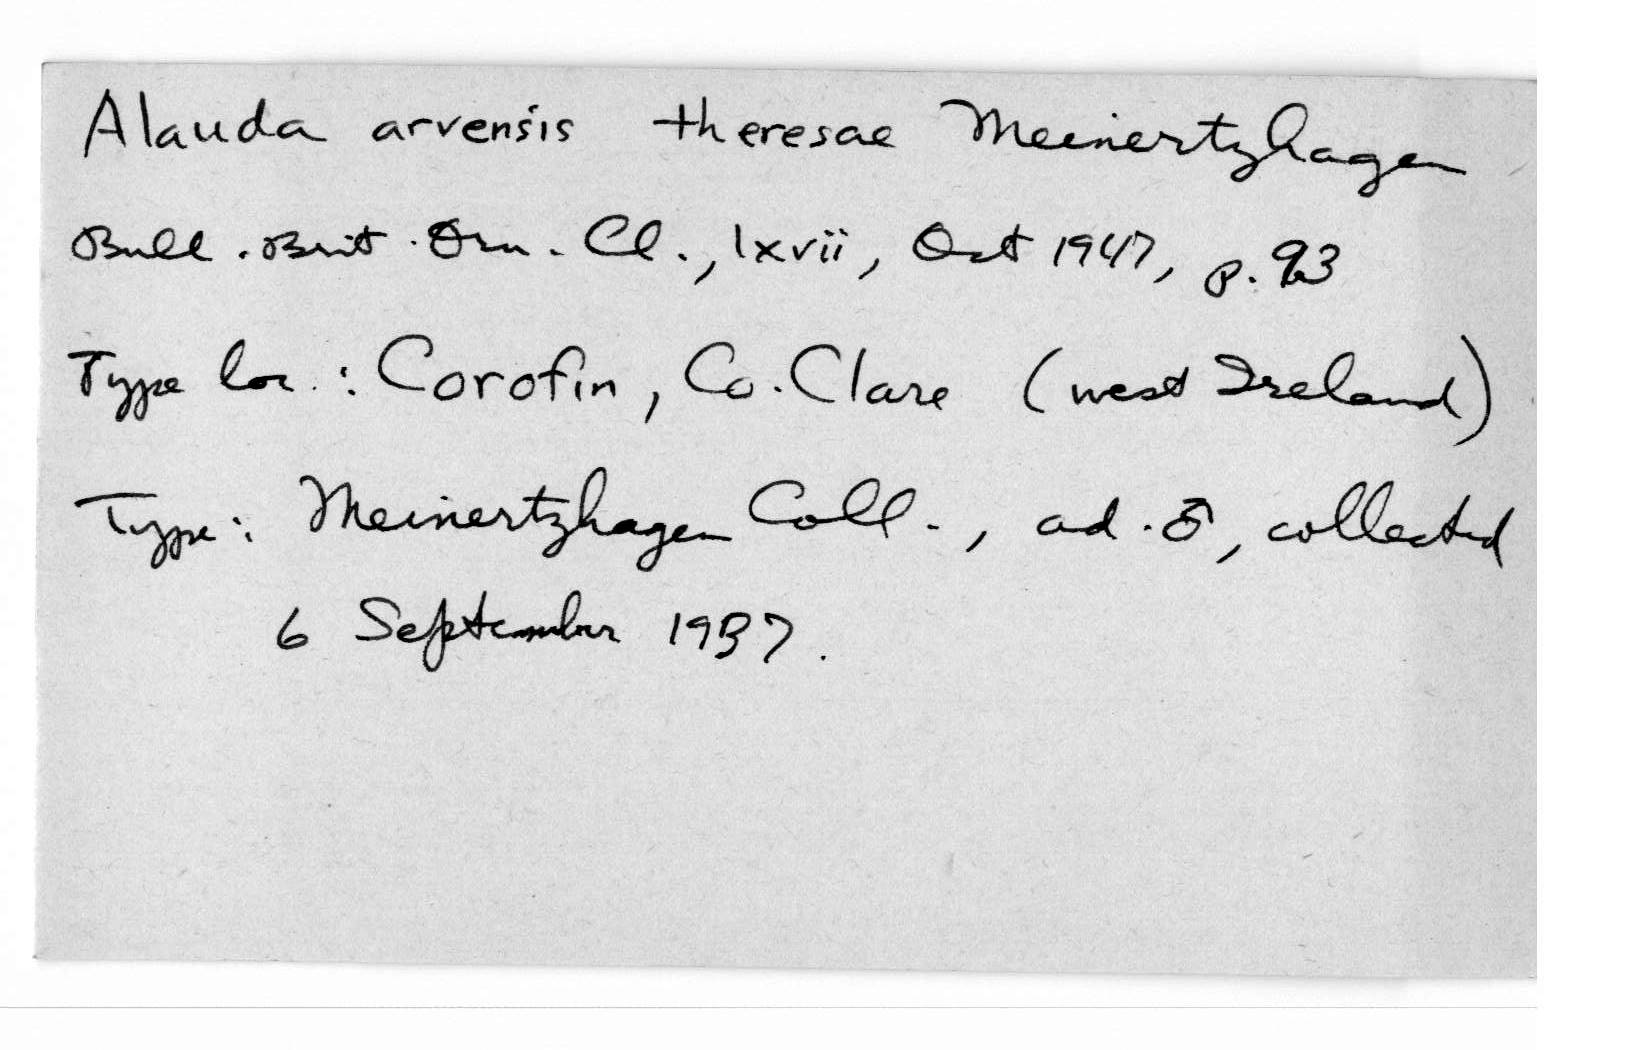 Alauda arvensis theresae Meinertzhagen
Bull. Brit. Orn. Cl., lxvii, Oct 1947, p. 93
Type loc.: Corofin, Co. Clare (west Ireland)
Type: Meinertzhagen Coll., ad. ♂, collected
6 September 1937.